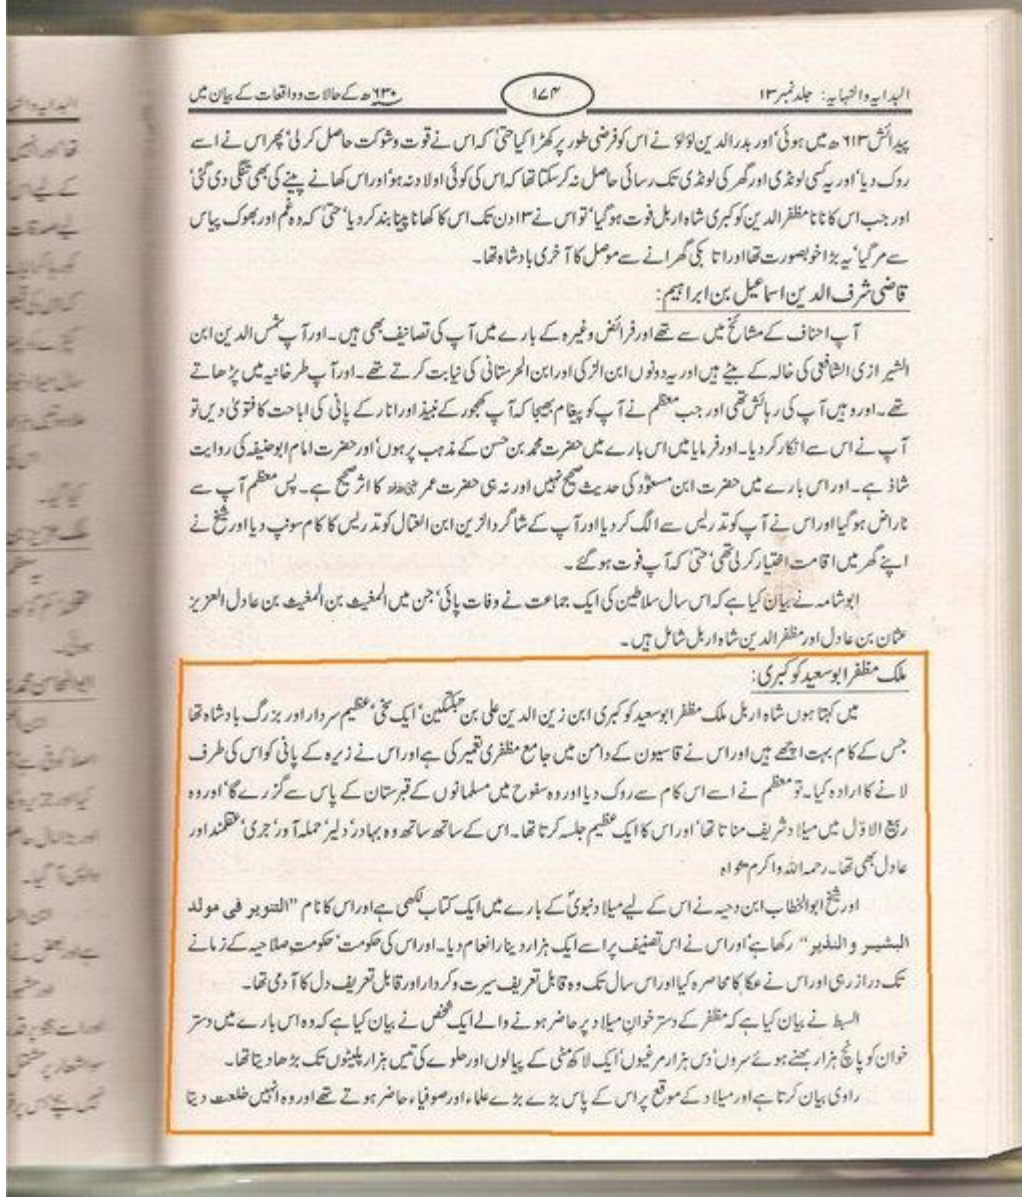 البدایہ والنہایہ: جلد نمبر ۱۳
۱۷۴
۶۳۰ھ کے حالات و واقعات کے بیان میں
پیدائش ۶۱۳ھ میں ہوئی، اور بدرالدین لؤلؤ نے اس کو فرضی طور پر کھڑا کیا حتیٰ کہ اس نے قوت و شوکت حاصل کر لی، پھر اس نے اسے
روک دیا، اور یہ کسی لونڈی اور گھر کی لونڈی تک رسائی حاصل نہ کر سکتا تھا کہ اس کی کوئی اولاد نہ ہو، اور اس کھانے پینے کی بھی تنگی دی گئی،
اور جب اس کا نانا مظفر الدین کوکبری شاہ اربل فوت ہو گیا، تو اس نے ۱۳ دن تک اس کا کھانا پینا بند کر دیا، حتیٰ کہ وہ غم اور بھوک پیاس
سے مر گیا، یہ بڑا خوبصورت تھا اور اتابکی گھرانے سے موصل کا آخری بادشاہ تھا۔
قاضی شرف الدین اسماعیل بن ابراہیم:
آپ احناف کے مشائخ میں سے تھے اور فرائض وغیرہ کے بارے میں آپ کی تصانیف بھی ہیں۔ اور آپ شمس الدین ابن
الشیرازی الشافعی کی خالہ کے بیٹے ہیں اور یہ دونوں ابن الزکی اور ابن الحرستانی کی نیابت کرتے تھے۔ اور آپ طرخانیہ میں پڑھاتے
تھے۔ اور وہیں آپ کی رہائش تھی اور جب معظم نے آپ کو پیغام بھیجا کہ آپ کھجور کے نبیذ اور انار کے پانی کی اباحت کا فتویٰ دیں تو
آپ نے اس سے انکار کر دیا۔ اور فرمایا میں اس بارے میں حضرت محمد بن حسن کے مذہب پر ہوں، اور حضرت امام ابوحنیفہ کی روایت
شاذ ہے۔ اور اس بارے میں حضرت ابن مسعودؓ کی حدیث صحیح نہیں اور نہ ہی حضرت عمر کا اثر صحیح ہے۔ پس معظم آپ سے
ناراض ہو گیا اور اس نے آپ کو تدریس سے الگ کر دیا اور آپ کے شاگرد الزین ابن العتال کو تدریس کا کام سونپ دیا اور شیخ نے
اپنے گھر میں اقامت اختیار کر لی تھی، حتیٰ کہ آپ فوت ہو گئے۔
ابوشامہ نے بیان کیا ہے کہ اس سال سلاطین کی ایک جماعت نے وفات پائی، جن میں المغیث بن المغیث بن عادل العزیز
عثمان بن عادل اور مظفر الدین شاہ اربل شامل ہیں۔
ملک مظفر ابوسعید کوکبری:
میں کہتا ہوں شاہ اربل ملک مظفر ابوسعید کوکبری ابن زین الدین علی بن تبکتکین، ایک سخی، عظیم سردار اور بزرگ بادشاہ تھا
جس کے کام بہت اچھے ہیں اور اس نے قاسیون کے دامن میں جامع مظفری تعمیر کی ہے اور اس نے زیرہ کے پانی کو اس کی طرف
لانے کا ارادہ کیا۔ تو معظم نے اسے اس کام سے روک دیا اور وہ سفوح میں مسلمانوں کے قبرستان کے پاس سے گزرے گا، اور وہ
ربیع الاوّل میں میلاد شریف مناتا تھا، اور اس کا ایک عظیم جلسہ کرتا تھا۔ اس کے ساتھ ساتھ وہ بہادر، دلیر، حملہ آور، جری، عقلمند اور
عادل بھی تھا۔ رحمہ اللہ واکرم مثواہ
اور شیخ ابوالخطاب ابن دحیہ نے اس کے لیے میلاد نبویؐ کے بارے میں ایک کتاب لکھی ہے اور اس کا نام "التنویر فی مولد
البشیر والنذیر" رکھا ہے، اور اس نے اس تصنیف پر اسے ایک ہزار دینار انعام دیا۔ اور اس کی حکومت، حکومتِ صلاحیہ کے زمانے
تک دراز رہی اور اس نے عکا کا محاصرہ کیا اور اس سال تک وہ قابل تعریف سیرت و کردار اور قابل تعریف دل کا آدمی تھا۔
السبط نے بیان کیا ہے کہ مظفر کے دسترخوانِ میلاد پر حاضر ہونے والے ایک شخص نے بیان کیا ہے کہ وہ اس بارے میں دستر
خوان کو پانچ ہزار بھنے ہوئے سروں، دس ہزار مرغیوں، ایک لاکھ مٹی کے پیالوں اور حلوے کی تیس ہزار پلیٹوں تک بڑھا دیتا تھا۔
راوی بیان کرتا ہے اور میلاد کے موقع پر اس کے پاس بڑے بڑے علماء اور صوفیاء حاضر ہوتے تھے اور وہ انہیں خلعت دیتا